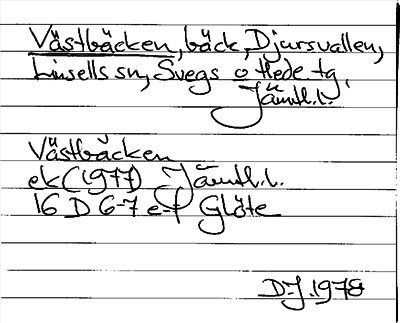 Västbäcken, bäck, Djursvallen,
Linsells sn, Svegs o Hede tg,
Jämtl.l.
Västbäcken
ek (1977) Jämtl.l.
16 D 6-7 e-f Glöte
D-J. 1978